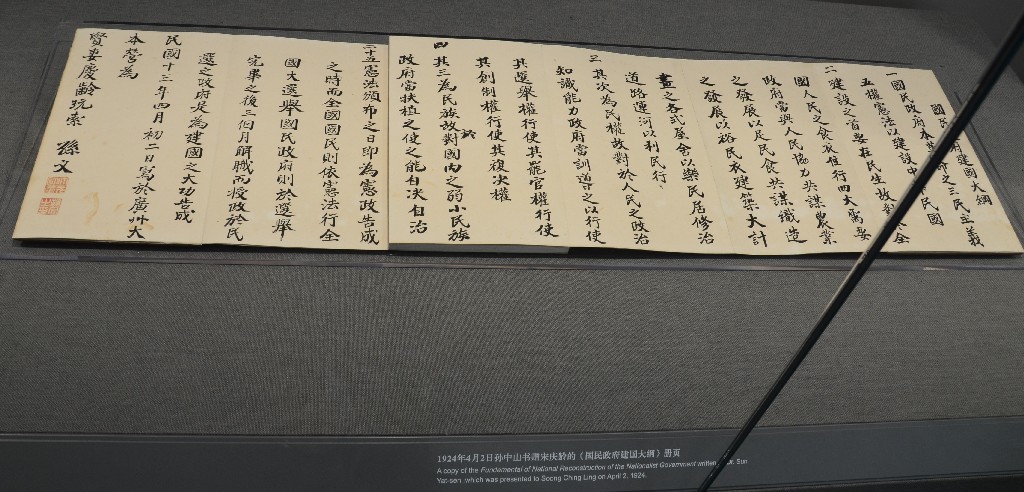 國民府建國大綱
一國民政府本之三民主義
五權憲法以建設中民國
二建設之首要在民生故對全
國人民之食衣住行四大需要
政府當與人民協力共謀農業
之發展以足民食共謀織造
之發展以裕民衣建築大計
畫之各式屋舍以樂民居修治
道路運河以利民行
三其次為民權故對於人民之政治
知識能力政府當訓導之以行使
其選舉權行使其罷官權行使
其創制權行使其複決權
四其三為民族故對國內之弱小民族
政府當扶植之使之能自決自治
二十五憲法頒布之日即為憲政告成
之時而全國國民則依憲法行全
國大選舉國民政府則於選舉
完畢之後三個月解職而授政於民
選之政府是為建國之大功告成
民國十三年四月初二日寫於廣州大
本營為
賢妻慶齡玩索 孫文
1924年4月2日孙中山书赠宋庆龄的《國民政府建国大綱》册页
A copy of the Fundamental of National Reconstruction of the Nationalist Government written Sun
Yat-sen, which was presented to Soong Ching Ling on April 2, 1924.